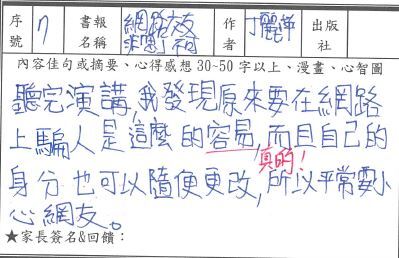 序號 7 書報名稱 網路交友 作者 丁麗萍 出版社
內容佳句或摘要、心得感想30~50字以上、漫畫、心智圖
聽完演講,我發現原來要在網路
上騙人是這麼的容易,而且自己的
真的!
身分也可以隨便更改,所以平常要小
心網友。
★家長簽名&回饋：